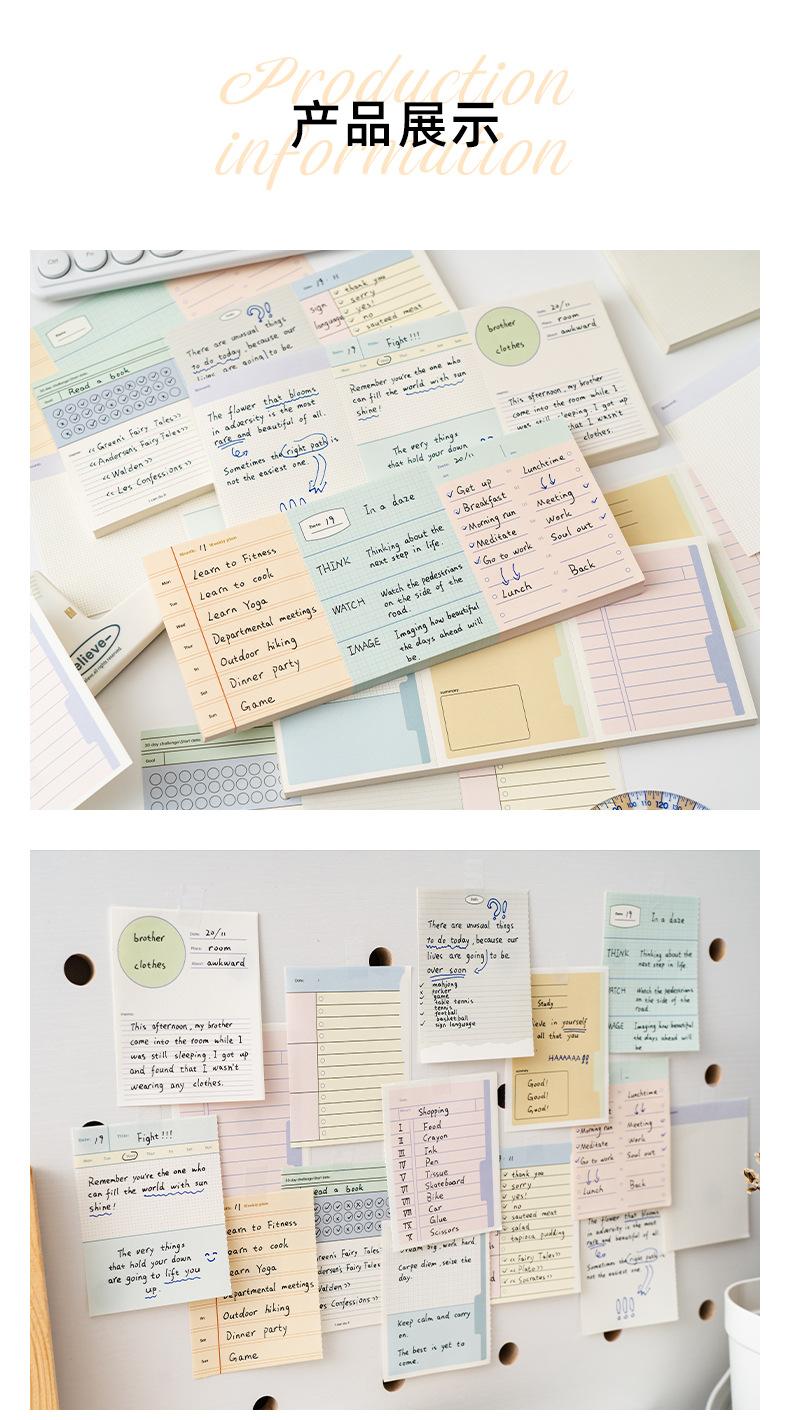 Production
产品展示
information
Ctrl
Fn
30-day challenge/Start date:
Read a book
<<Green's Fairy Tales>>
<<Andersen's Fairy Tales>>
<<Walden>>
<<Les Confessions>>
I can do it
There are unusual things
to do today, because our
lives are going to be
The flower that blooms
in adversity is the most
rare and beautiful of all.
Sometimes the right path is
not the easiest one.
19 · 11
sign
language
thank you
sorry
yes!
no
sauteed meat
19
Fight!!!
Remember you're the one who
can fill the world with sun
shine!
The very things
that hold your down
brother
clothes
20/11
room
awkward
This afternoon, my brother
came into the room while I
was still sleeping. I got up
that I wasn't
clothes.
Month: 11 Weekly plan
Mon
Learn to Fitness
Tue
Learn to cook
Wed
Learn Yoga
Thur
Departmental meetings
Fri
Outdoor hiking
Sat
Dinner party
Sun
Game
Date: 19
In a daze
THINK
Thinking about the
next step in life.
WATCH
Watch the pedestrians
on the side of the
road.
IMAGE
Imaging how beautiful
the days ahead will
be.
20/11
Get up
Breakfast
Morning run
Meditate
Go to work
Lunch
Lunchtime
Meeting
Work
Soul out
Back
elieve—
summary
30-day challenge/Start date:
Goal
100
110
120
brother
clothes
Date: 20/11
Place: room
About: awkward
This afternoon, my brother
came into the room while I
was still sleeping. I got up
and found that I wasn't
wearing any clothes.
Date:
There are unusual things
to do today, because our
lives are going to be
over soon
mahjong
porker
game
table tennis
tennis
football
basketball
sign language
19
In a daze
THINK
Thinking about the
next step in life.
ATCH
Watch the pedestrians
on the side of the
road.
MAGE
Imaging how beautiful
the days ahead will
be
Study
ieve in yourself
all that you
HAAAAA!!
summary
Good!
Good!
Good!
Shopping
I Food
II Crayon
III Ink
IV Pen
V Tissue
VI Skateboard
VII Bike
VIII Car
IX Glue
X Scissors
Date: 19
Title: Fight!!!
Remember you're the one who
can fill the world with sun
shine!
The very things
that hold your down
are going to lift you
up.
11 Weekly plan
earn to Fitness
earn to cook
earn Yoga
epartmental meetings
Outdoor hiking
Sat
Dinner party
Sun
Game
30-day challenge/Start date:
ead a book
reen's Fairy Tales
ndersen's Fairy Tales
Walden>>
es Confessions>>
I can do it
Dream big, work hard
Carpe diem, seize the
day.
Keep calm and carry
on.
The best is yet to
come.
thank you
sorry
yes!
no
sauteed meat
salad
tapioca pudding
<<Fairy Tales>>
<<Plato>>
<<Socrates>>
Morning run
Meditate
Go to work
Lunch
Lunchtime
Meeting
Work
Soul out
Back
The flower that blooms
in adversity is the most
rare and beautiful of all.
Sometimes the right path is
not the easiest one.